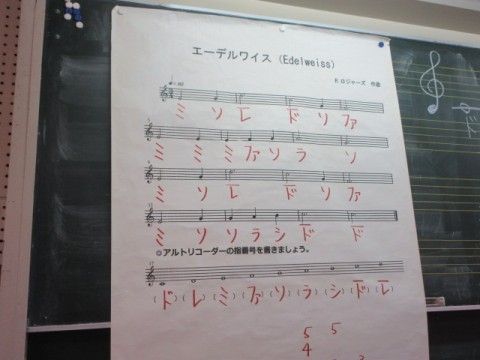 エーデルワイス (Edelweiss)
R.ロジャーズ 作曲
ミ ソ レ ド ソ ファ
ミ ミ ミ ファ ソ ラ ソ
ミ ソ レ ド ソ ファ
ミ ソ ソ ラ シ ド ド
◎アルトリコーダーの指番号を書きましょう。
(ド)(レ)(ミ)(ファ)(ソ)(ラ)(シ)(ド)(レ)
5 5
4